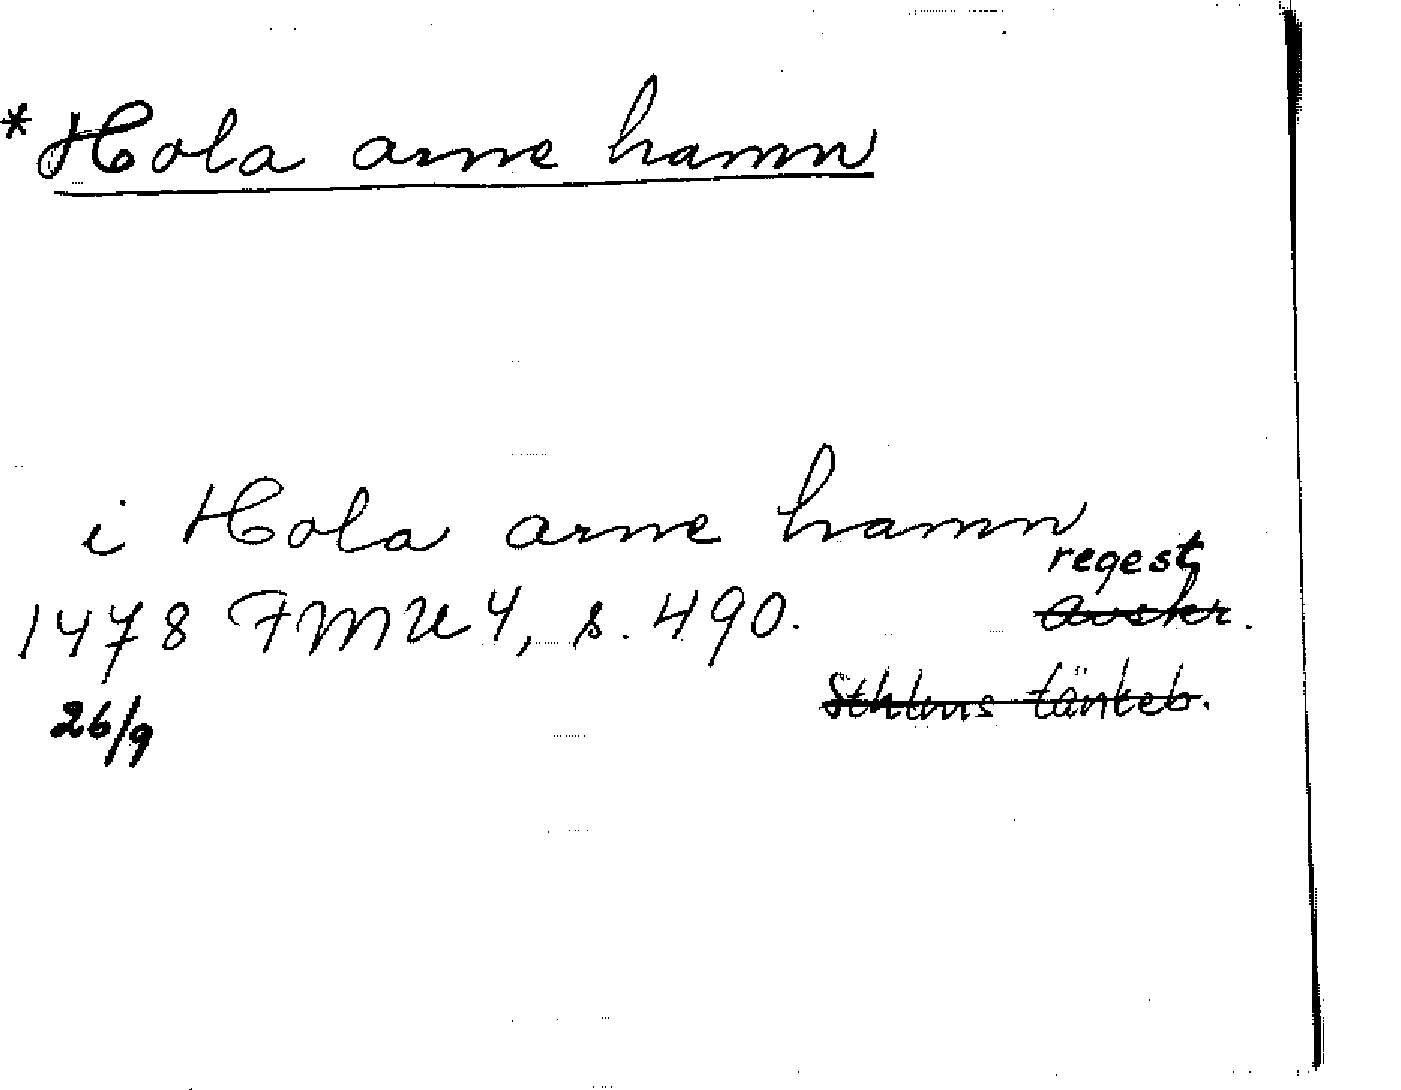 *Hola arne hamn
i Hola arne hamn
regest
1478 FMU 4, s. 490. avskr.
Sthlms tänkeb.
26/9